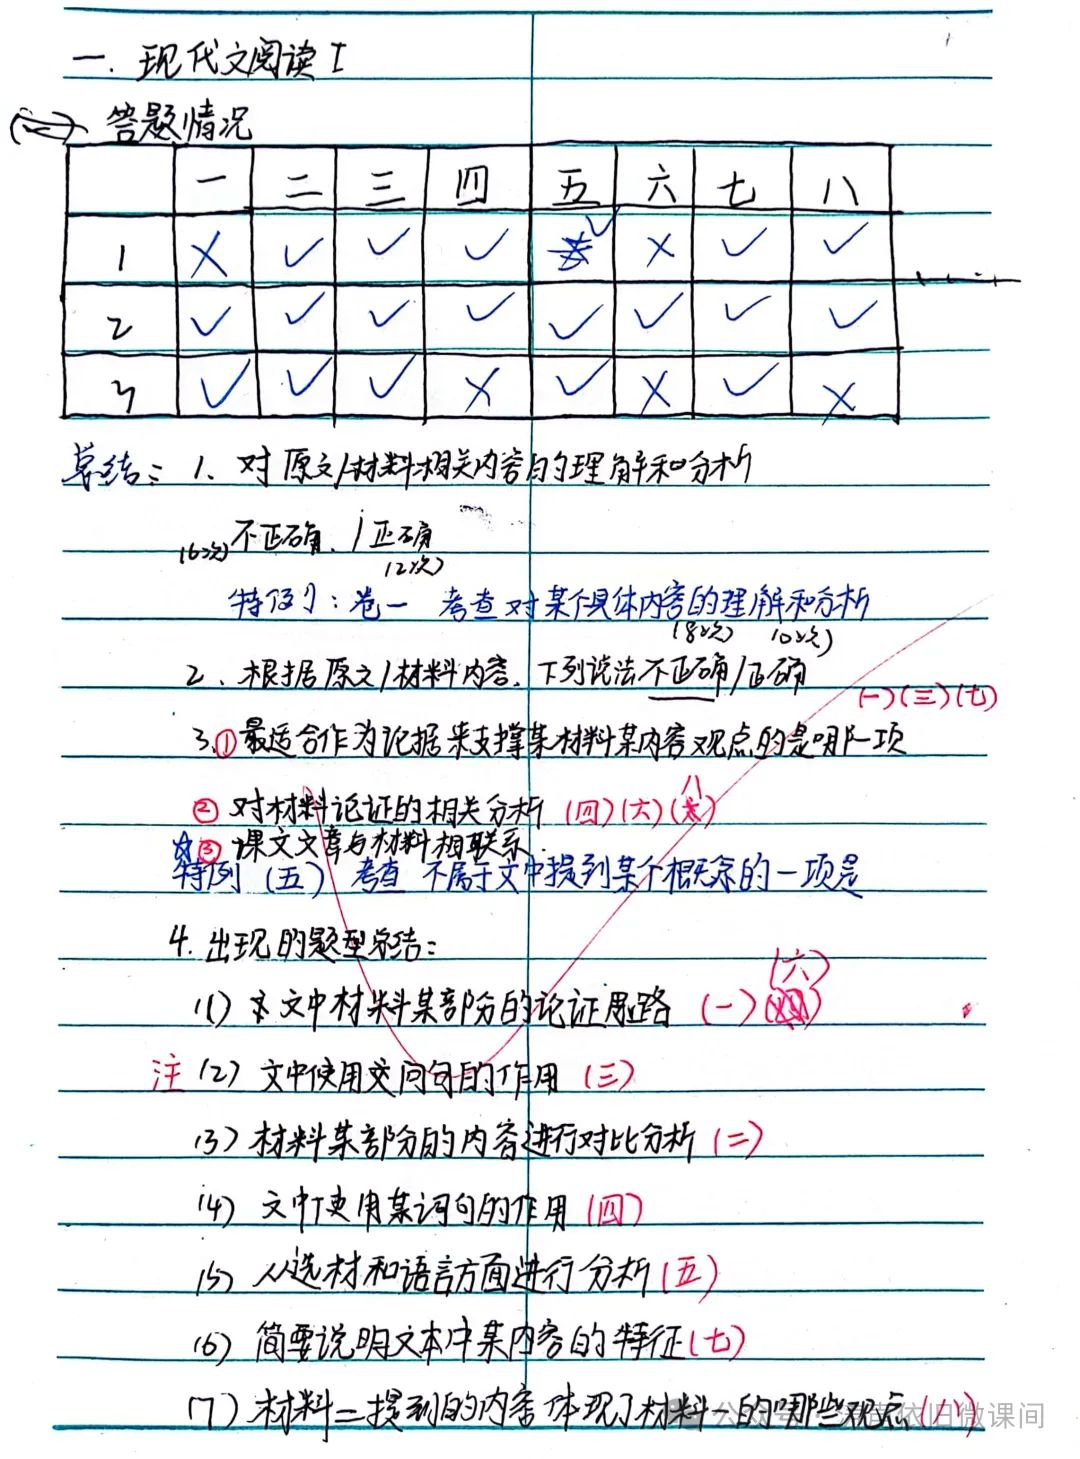 一. 现代文阅读I
答题情况
一 二 三 四 五 六 七 八
1 × ✓ ✓ ✓ ✓ × ✓ ✓
2 ✓ ✓ ✓ ✓ ✓ ✓ ✓ ✓
3 ✓ ✓ ✓ × ✓ × ✓ ×
总结: 1、对原文/材料相关内容的理解和分析
(6次) 不正确、/正确 (2次)
特例: 卷一 考查对某个具体内容的理解和分析
(8次) (0次)
2、根据原文/材料内容、下列说法不正确/正确
(一)(三)(七)
3.①最适合作为论据来支撑某材料某内容观点的是哪一项
②对材料论证的相关分析 (四)(六)(八)
☆③课文文章与材料相联系.
特例 (五) 考查 不属于文中提到某个概念的一项是
4.出现的题型总结:
(六)
(1) 文中材料某部分的论证思路 (一)
注 (2) 文中使用设问句的作用 (三)
(3) 材料某部分的内容进行对比分析 (二)
(4) 文中使用某词句的作用 (四)
(5) 从选材和语言方面进行分析 (五)
(6) 简要说明文本中某内容的特征 (七)
(7) 材料二提到的内容体现了材料一的哪些观点 (八)
公众号 依旧微课间